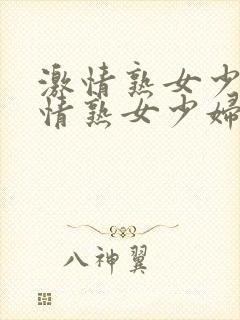 激情熟女少
情熟女少婦
八神翼